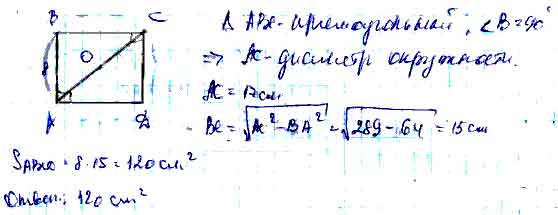 B C
O
8
A D
Δ ABC - прямоугольный, ∠B = 90°
⇒ AC - диаметр окружности.
AC = 17 см
BC = √(AC² - BA²) = √(289 - 64) = 15 см
S_ABCD = 8 · 15 = 120 см²
Ответ: 120 см²